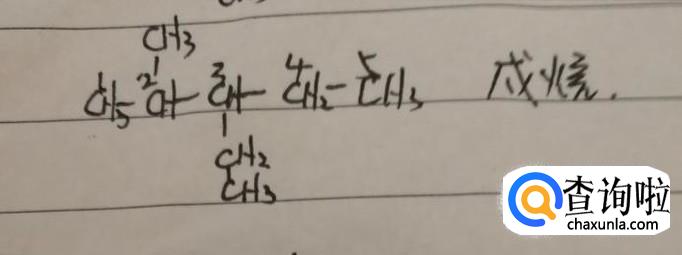 CH3
1 2 3 4 5
CH3-CH-CH-CH2-CH3 戊烷.
CH2
CH3
查询啦
chaxunla.com